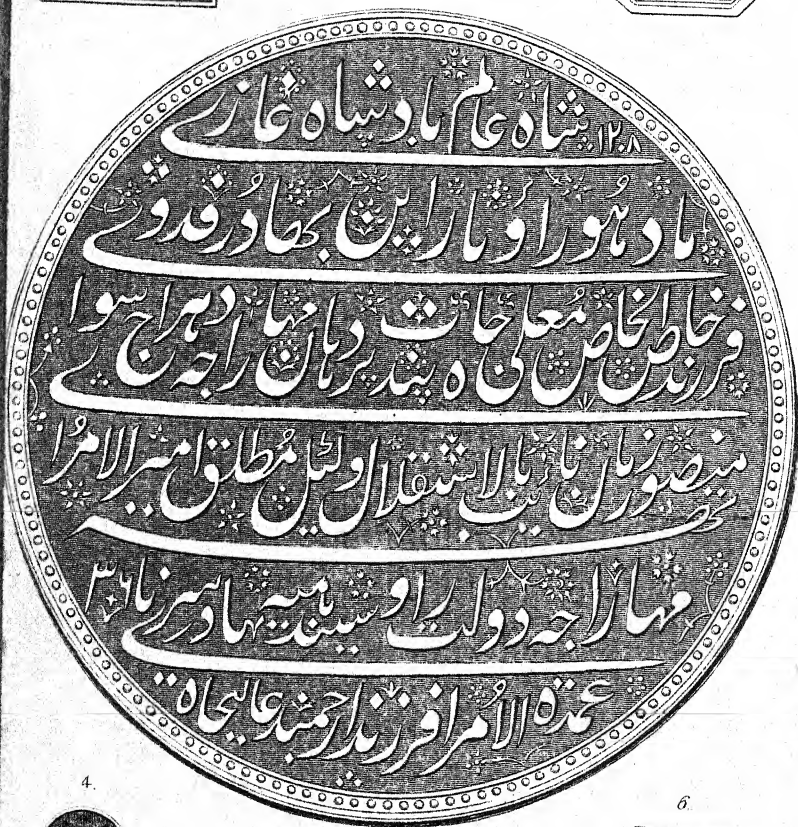 شاه عالم بادشاه غازے ۱۲۰۸
مادهوراو ناراین بهادر فدوے
فرزند خاص الخاص معلی جاه پندت پردهان مهاراجه دهراج سوائے
منصور زمان نایب بالاستقلال وکیل مطلق امیر الامرا
مهاراجه دولت راو سیندهیه بهادر ۳۶
عمدة الامرا فرزند ارجمند عالیجاه
4.
6.